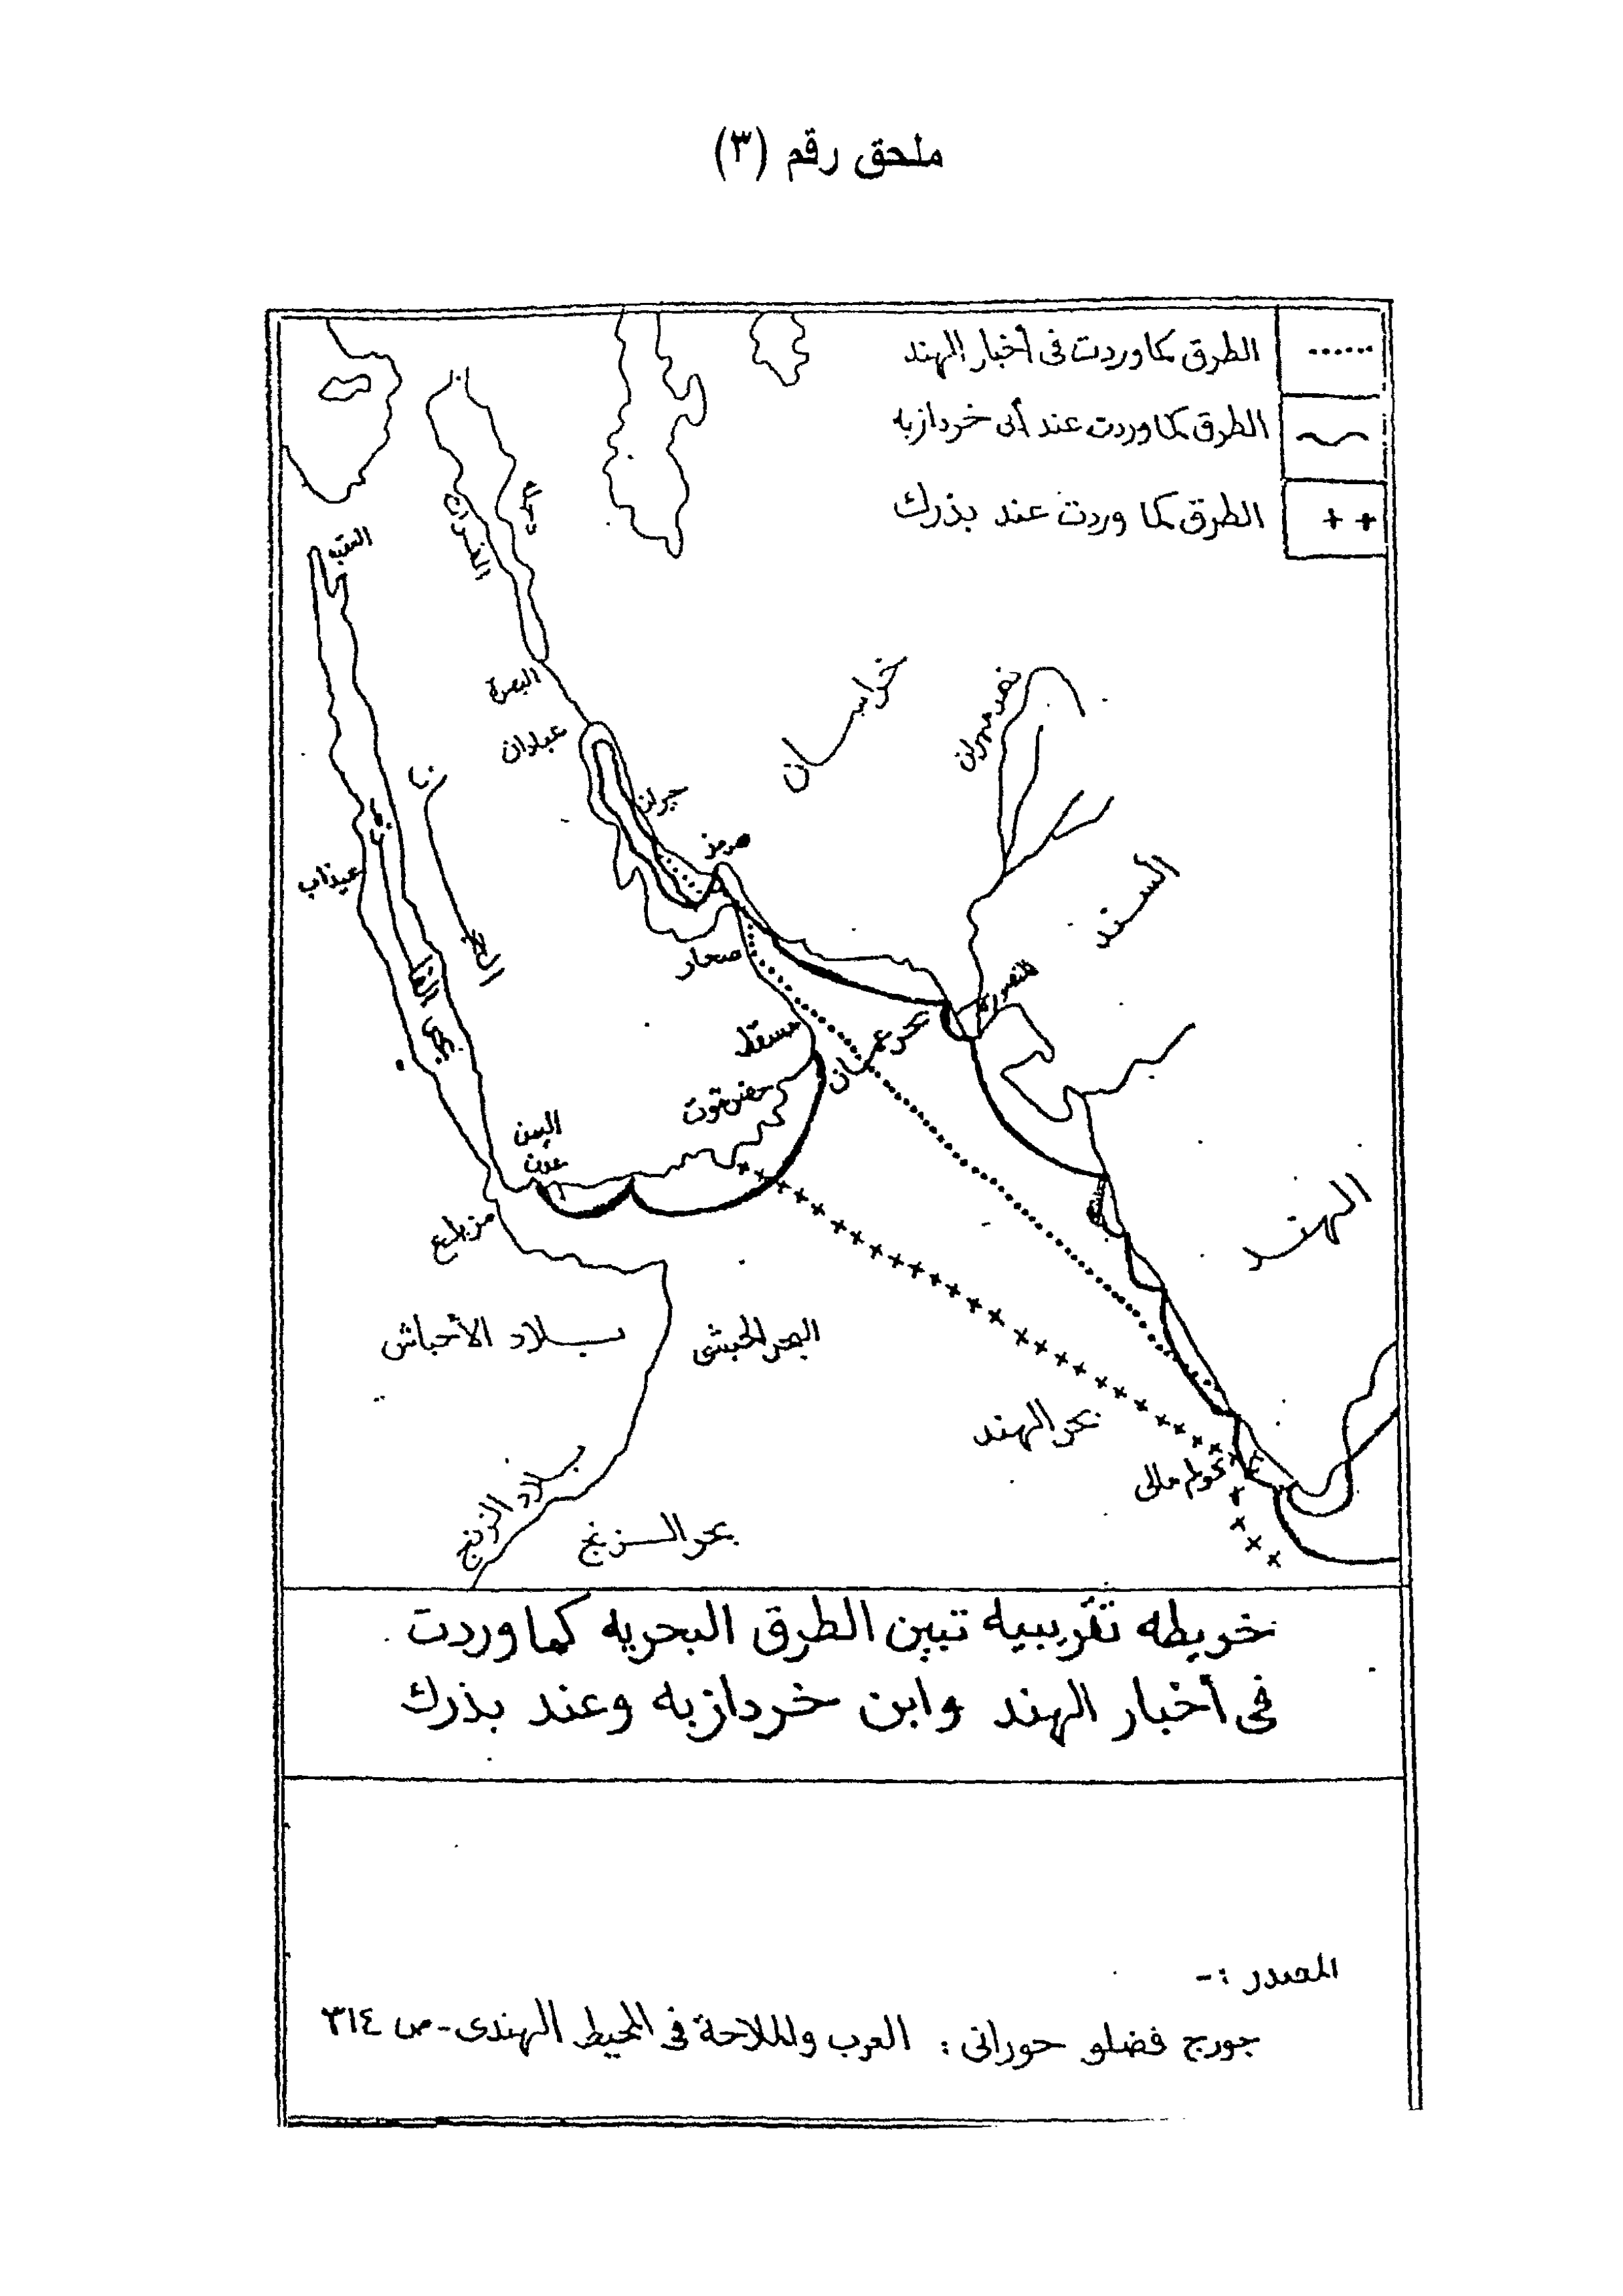 ملحق رقم (٣)
الطرق كما وردت فى أخبار الهند
الطرق كما وردت عند أبى خردازبه
الطرق كما وردت عند بذرك
العقبه
الفرات
البصرة
عبادان
خراسان
نهر مهران
هرمز
عيذاب
السند
صحار
مسقط
بحر عمان
حضرموت
اليمن
عدن
الهند
بلاد الأحباش
البحر الحبشى
بحر الهند
كولم ملى
بلاد الزنج
بحر الزنج
خريطه تقريبيه تبين الطرق البحريه كما وردت
فى أخبار الهند وابن خردازبه وعند بذرك
المصدر :-
جورج فضلو حورانى : العرب والملاحة فى المحيط الهندى - ص ٣١٤